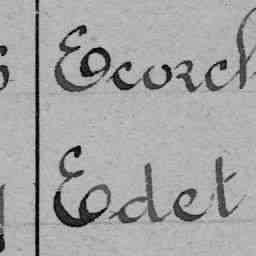 Ecorch
Edet